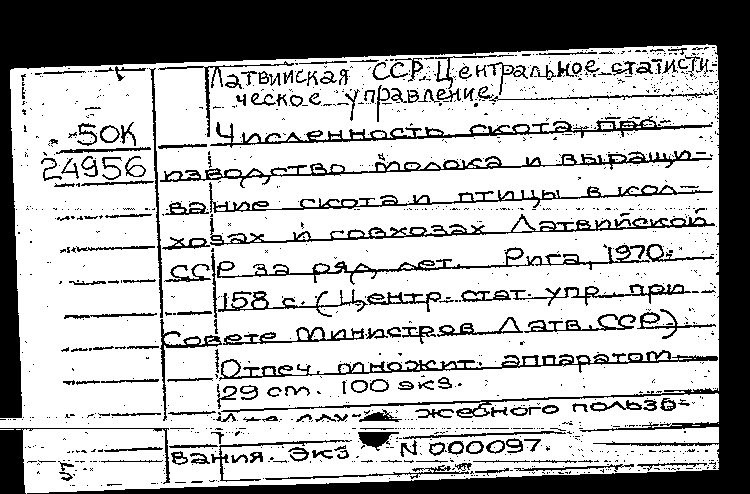 Латвийская ССР. Центральное статисти-
ческое управление.
50К
24956
Численность скота, про-
изводство молока и выращи-
вание скота и птицы в кол-
хозах и совхозах Латвийской
ССР за ряд лет. Рига, 1970.
158 с. (Центр. стат. упр. при
Совете Министров Латв.ССР)
Отпеч. множит. аппаратом
29 cm. 100 экз.
жебного пользо-
вания. Экз N 000097.